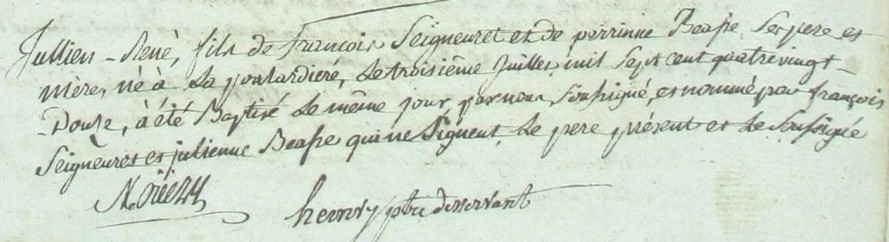 Jullien-René, fils de François Seigneuret et de perrinne Beasse Ses pere et
mère, né à La poulardiere, Le troisième Juillet mil Sept cent quatre vingt-
Douze, à été Baptisé Le même jour par nous Soussigné, et nommé par françois
Seigneuret et julienne Beasse qui ne Signent, Le pere présent et Le Soussigné
henry ptre desservant